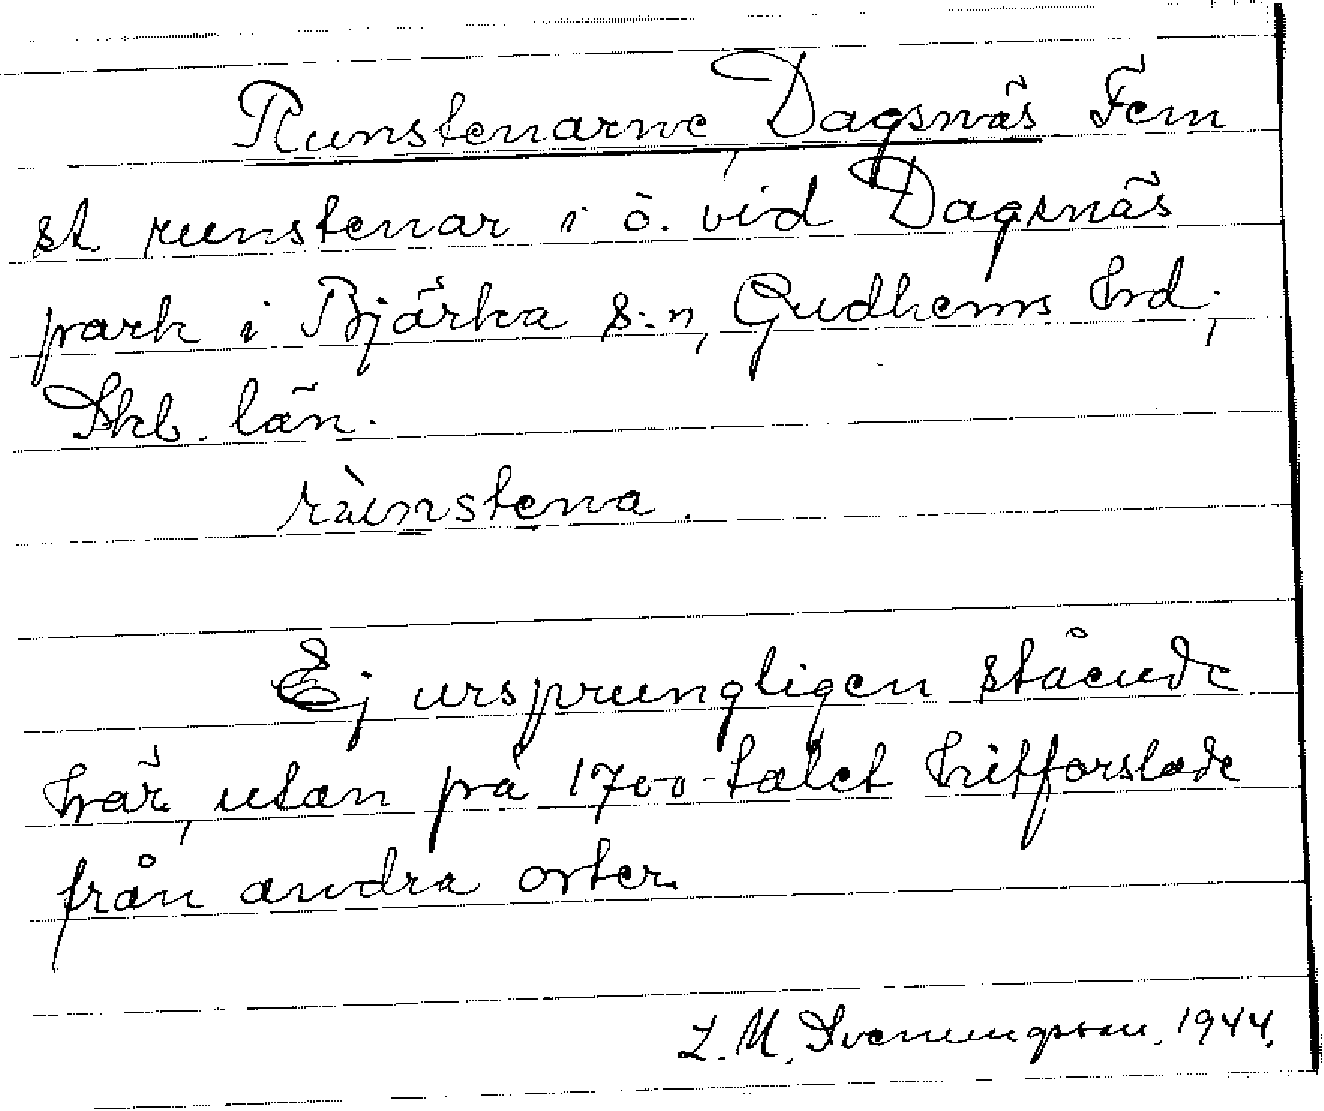 Runstenarne, Dagsnäs Fem
st. runstenar i ö. vid Dagsnäs
park i Bjärka s:n, Gudhems hrd,
Skb. län.
rùnstena.
Ej ursprungligen stående
här, utan på 1700-talet hitforslade
från andra orter.
L. M. Svenungsson. 1944.